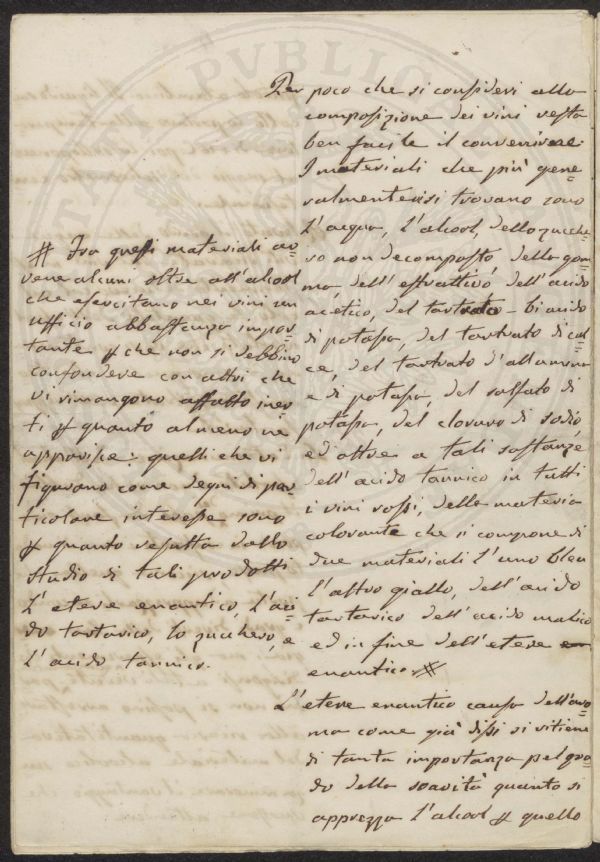 Per poco che si consideri alla
composizione dei vini resta
ben facile il convenire.
I materiali che più gene=
ralmente vi si trovano sono
l'acqua, l'alcool, dello zucche=
ro non decomposto, della gom=
ma, dell'estrattivo, dell'acido
acetico, del tartrato-bi acido
di potassa, del tartrato di cal=
ce, del tartrato d'allumina
e di potassa, del solfato di
potassa, del cloruro di sodio,
ed oltre a tali sostanze
dell'acido tannico in tutti
i vini rossi, della materia
colorante che si compone di
due materiali l'uno bleu
l'altro giallo, dell'acido
tartarico dell'acido malico
ed in fine dell'etere
enantico. #
# Tra questi materiali av=
vene alcuni oltre all'alcool
che esercitano nei vini un
ufficio abbastanza impor=
tante che non si debbino
confondere con altri che
vi rimangono affatto iner=
ti quanto almeno ne
apparisce: quelli che vi
figurano come degni di par=
ticolare interesse sono
quanto resulta dallo
studio di tali prodotti
L'etere enantico, l'aci=
do tartarico, lo zucchero, e
l'acido tannico.
L'etere enantico causa dell'aro=
ma come già dissi si ritiene
di tanta importanza pel gra=
do della soavità quanto si
apprezza l'alcool quello